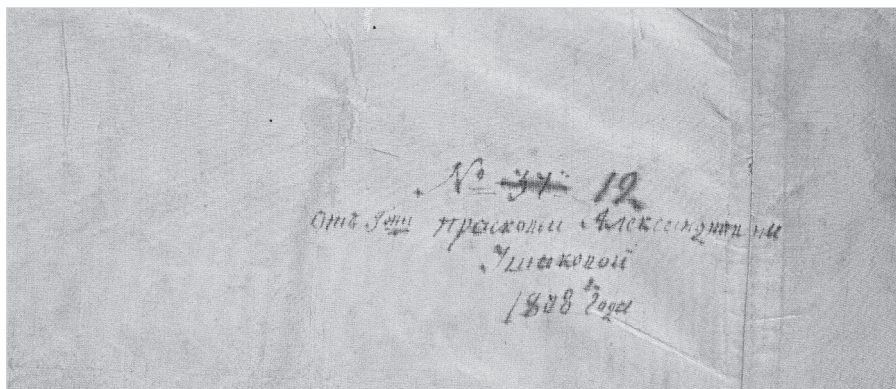 № 37 12
отъ Гжи Прасковьи Александровны
Ушаковой
1808го Года